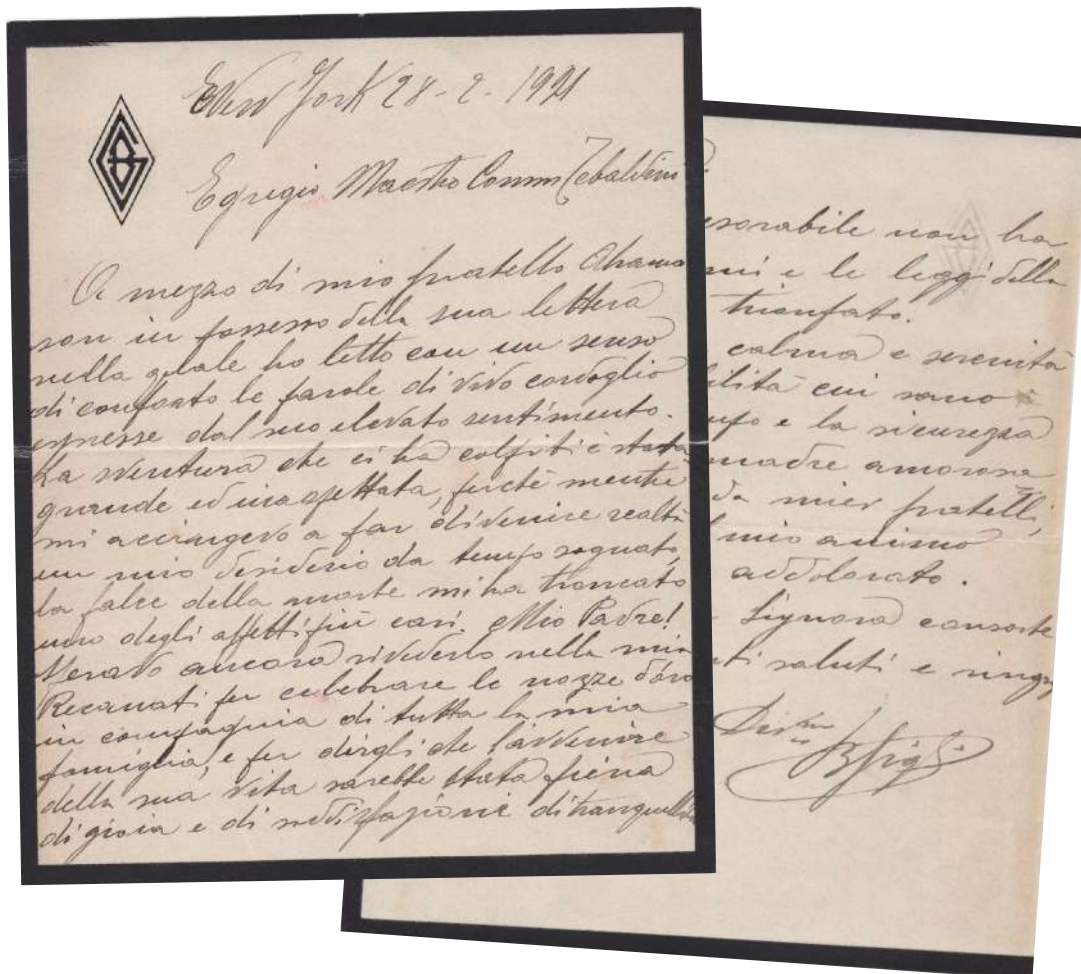 New York 28-2-1921
Egregio Maestro Comm Tebaldini
A mezzo di mio fratello Abramo
son in possesso della sua lettera
nella quale ho letto con un senso
di conforto le parole di vivo cordoglio
espresse dal suo elevato sentimento.
La sventura che ci ha colpiti è stata
grande ed inaspettata, perchè mentre
mi accingevo a far divenire realtà
un mio desiderio da tempo sognato,
la falce della morte mi ha troncato
uno degli affetti più cari. Mio Padre!
Speravo ancora rivederlo nella mia
Recanati per celebrare le nozze d'oro
in compagnia di tutta la mia
famiglia, e per dirgli che l'avvenire
della sua vita sarebbe stata piena
di gioia e di soddisfazione di tranquillità
esorabile non ha
mi e le leggi della
trionfato.
calma e serenità
ilità cui sono
e la sicurezza
madre amorosa
da miei fratelli,
l mio animo
addolorato.
Signora consorte
ti saluti e ringr
BGigli